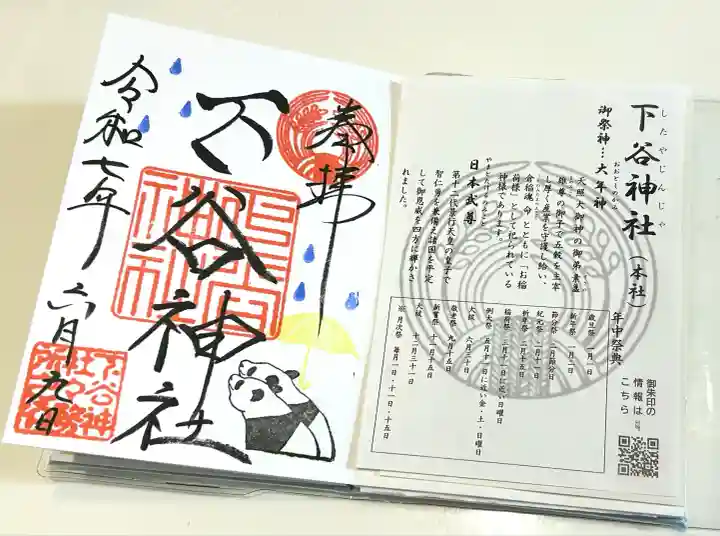 奉拝
下谷神社
令和七年
六月九日
下谷神
社々務
所之印
したやじんじゃ
下谷神社(本社)
御祭神…大年神
おおとしのかみ
天照大御神の御弟素盞
雄尊の御子で五穀を主宰
し厚く産業を守護し給い、
倉稲魂命とともに「お稲
荷様」として祀られている
神様であります。
日本武尊
やまとたけるのみこと
第十二代景行天皇の皇子で
智仁勇を兼備え諸国を平定
して御恩威を四方に輝かさ
れました。
年中祭典
歳旦祭 一月一日
新年祭 一月二日
節分祭 二月節分日
紀元祭 二月十一日
祈年祭 二月十五日
稲荷祭 三月十二日に近い日曜日
例大祭 五月十一日に近い金・土・日曜日
大祓 六月三十日
敬老祭 九月十五日
新嘗祭 十一月十五日
大祓 十二月三十一日
月次祭 毎月一日・十一日・十五日
御朱印の
情報は
こちら